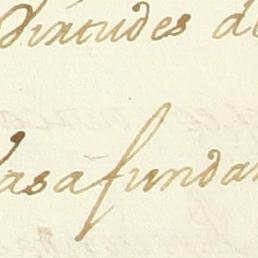 Virtudes de
Casa fundar